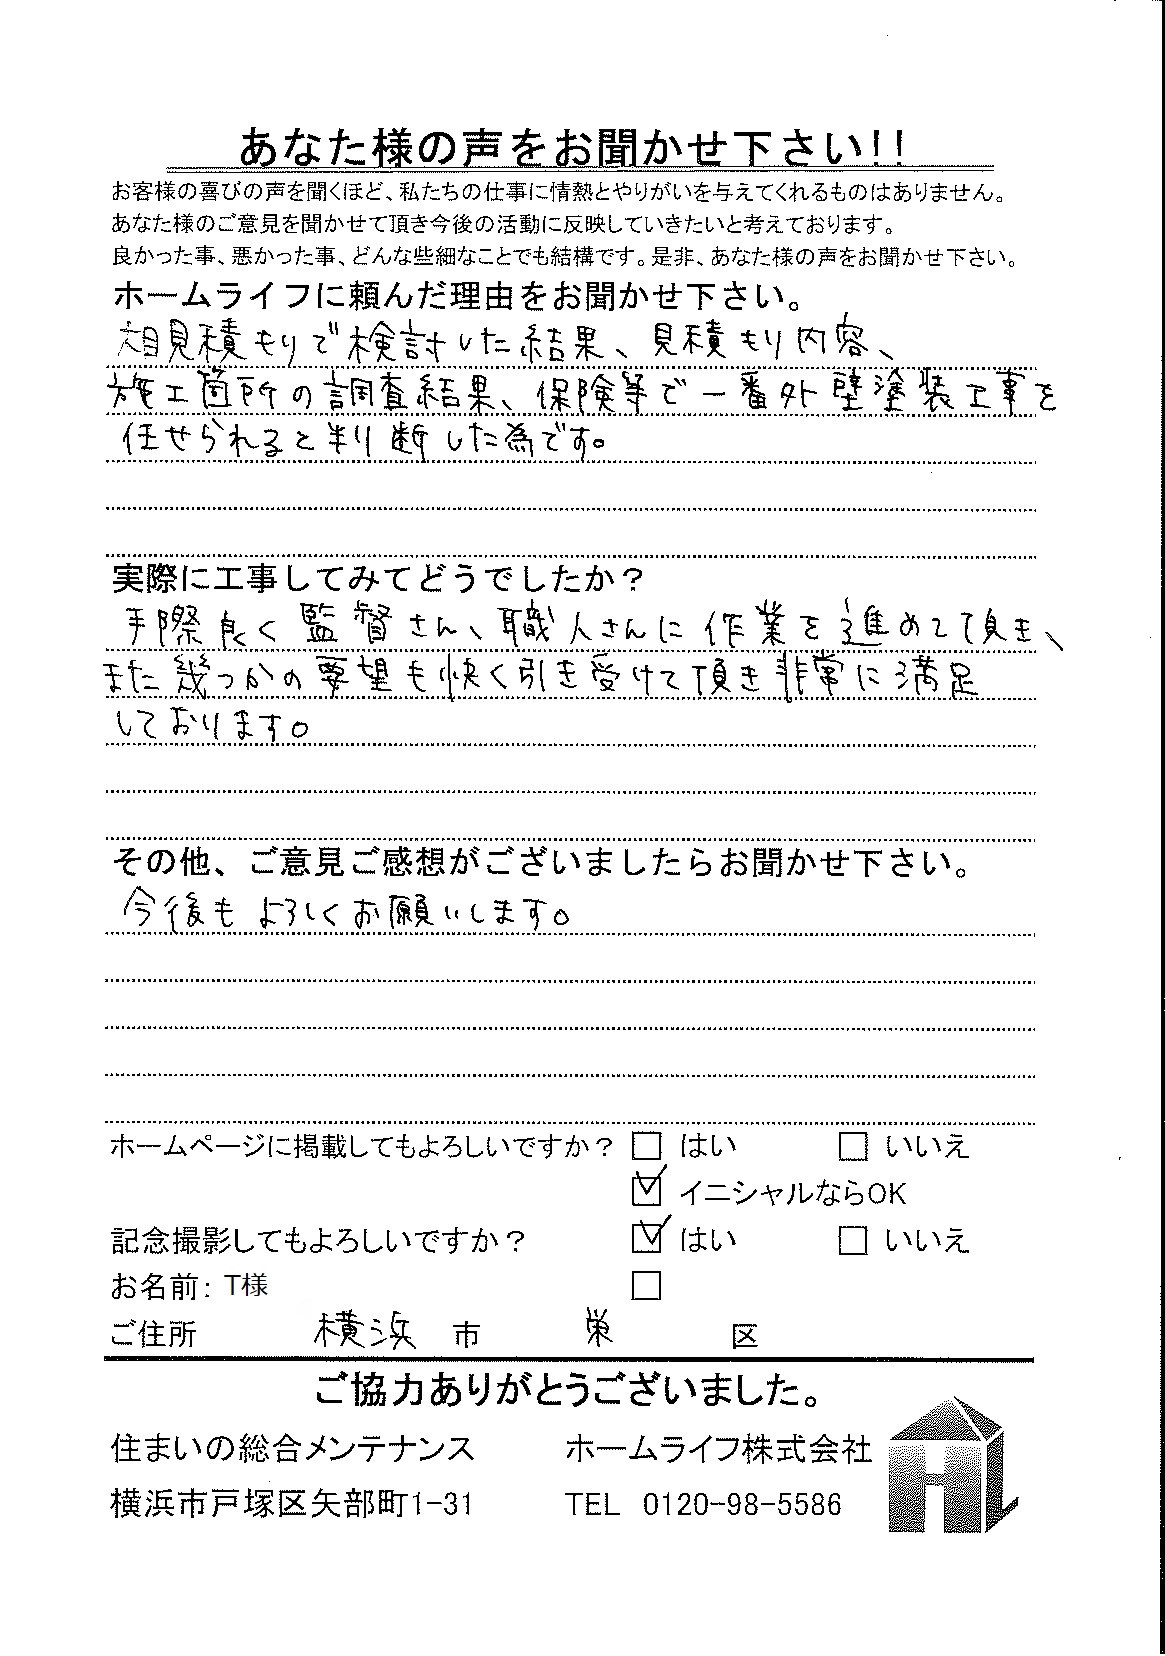 あなた様の声をお聞かせ下さい!!
お客様の喜びの声を聞くほど、私たちの仕事に情熱とやりがいを与えてくれるものはありません。
あなた様のご意見を聞かせて頂き今後の活動に反映していきたいと考えております。
良かった事、悪かった事、どんな些細なことでも結構です。是非、あなた様の声をお聞かせ下さい。
ホームライフに頼んだ理由をお聞かせ下さい。
相見積もりで検討した結果、見積もり内容、
施工箇所の調査結果、保険等で一番外壁塗装工事を
任せられると判断した為です。
実際に工事してみてどうでしたか？
手際良く監督さん、職人さんに作業を進めて頂き、
また幾つかの要望も快く引き受けて頂き非常に満足
しております。
その他、ご意見ご感想がございましたらお聞かせ下さい。
今後もよろしくお願いします。
ホームページに掲載してもよろしいですか？ □ はい □ いいえ
☑ イニシャルならOK
記念撮影してもよろしいですか？ ☑ はい □ いいえ
お名前: T様 □
ご住所 横浜 市 栄 区
ご協力ありがとうございました。
住まいの総合メンテナンス ホームライフ株式会社
横浜市戸塚区矢部町1-31 TEL 0120-98-5586